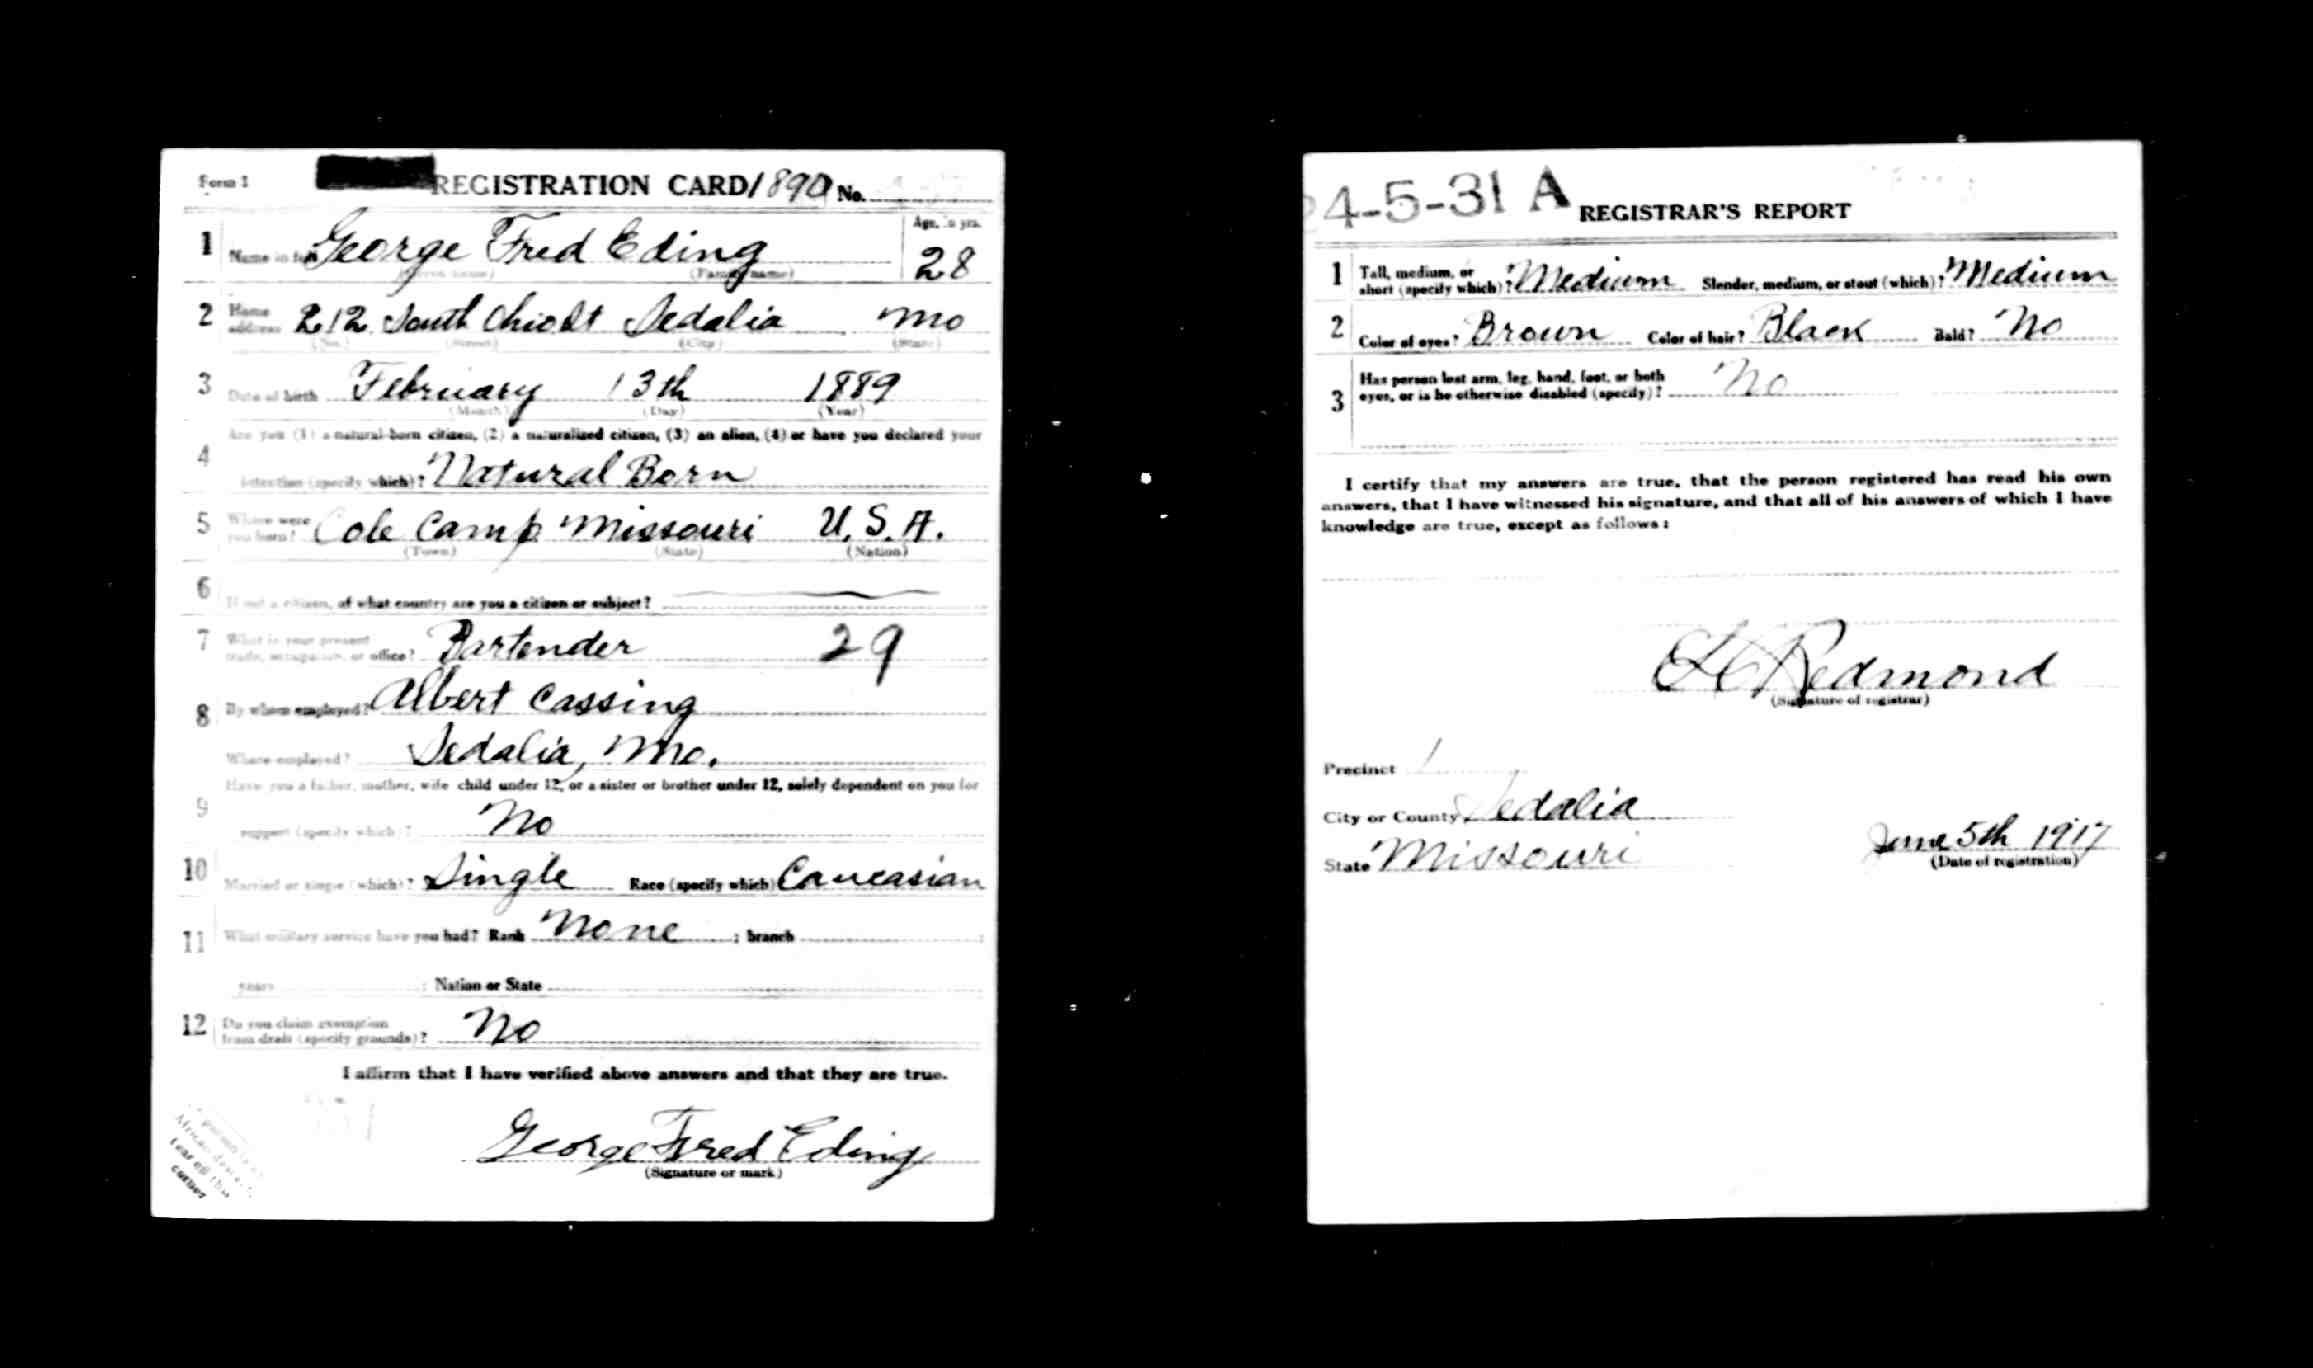 Form 1 REGISTRATION CARD 1890 No.
1 Name in full George Fred Eding Age, in yrs. 28
(Given name) (Family name)
2 Home address 212 South Ohio St Sedalia Mo
(No.) (Street) (City) (State)
3 Date of birth February 13th 1889
(Month) (Day) (Year)
4 Are you (1) a natural-born citizen, (2) a naturalized citizen, (3) an alien, (4) or have you declared your
intention (specify which)? Natural Born
5 Where were you born? Cole Camp Missouri U.S.A.
(Town) (State) (Nation)
6 If not a citizen, of what country are you a citizen or subject?
7 What is your present trade, occupation, or office? Bartender 29
8 By whom employed? Albert Cassing
Where employed? Sedalia, Mo.
9 Have you a father, mother, wife child under 12, or a sister or brother under 12, solely dependent on you for
support (specify which)? No
10 Married or single (which)? Single Race (specify which) Caucasian
11 What military service have you had? Rank None ; branch ;
years ; Nation or State
12 Do you claim exemption from draft (specify grounds)? No
I affirm that I have verified above answers and that they are true.
George Fred Eding
(Signature or mark)
tear off this
corner
24-5-31 A REGISTRAR'S REPORT
1 Tall, medium, or short (specify which)? Medium Slender, medium, or stout (which)? Medium
2 Color of eyes? Brown Color of hair? Black Bald? No
3 Has person lost arm, leg, hand, foot, or both
eyes, or is he otherwise disabled (specify)? No
I certify that my answers are true, that the person registered has read his own
answers, that I have witnessed his signature, and that all of his answers of which I have
knowledge are true, except as follows:
Redmond
(Signature of registrar)
Precinct 1
City or County Sedalia
State Missouri June 5th 1917
(Date of registration)